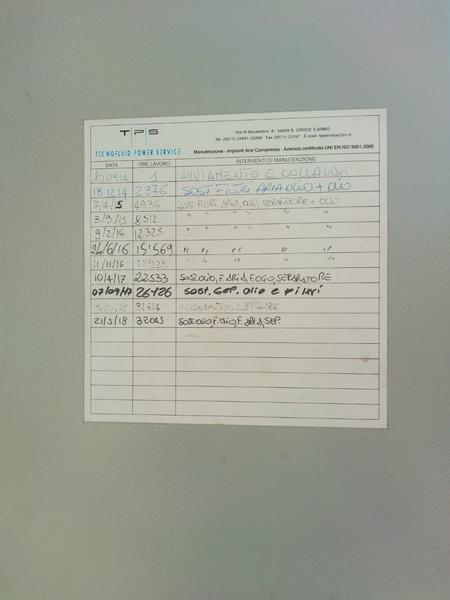 TPS
Via IV Novembre, 8 - 56029 S. CROCE S/ARNO
TECNOFLUID POWER SERVICE
Manutenzione - Impianti Aria Compressa - Azienda certificata UNI EN ISO 9001:2000
DATA ORE LAVORO INTERVENTI DI MANUTENZIONE
1 AVVIAMENTO E COLLAUDO
18.12.14 2376 SOST FILTRI ARIA OLIO + OLIO
4936 SOST FILTRI, ARIA, OLIO, SEPARATORE + OLIO
3/9/15 8512 " " " " "
9/2/16 12325 " " " " "
24/6/16 15'569 " " " " "
11/11/16 " " " " "
10/4/17 22533 SOST. OLIO, F. ARIA, F. OLIO, SEPARATORE
07/09/17 26126 SOST. SEP. OLIO E FILTRI
21/5/18 SOST. OLIO, F. OLIO, F. ARIA, SEP